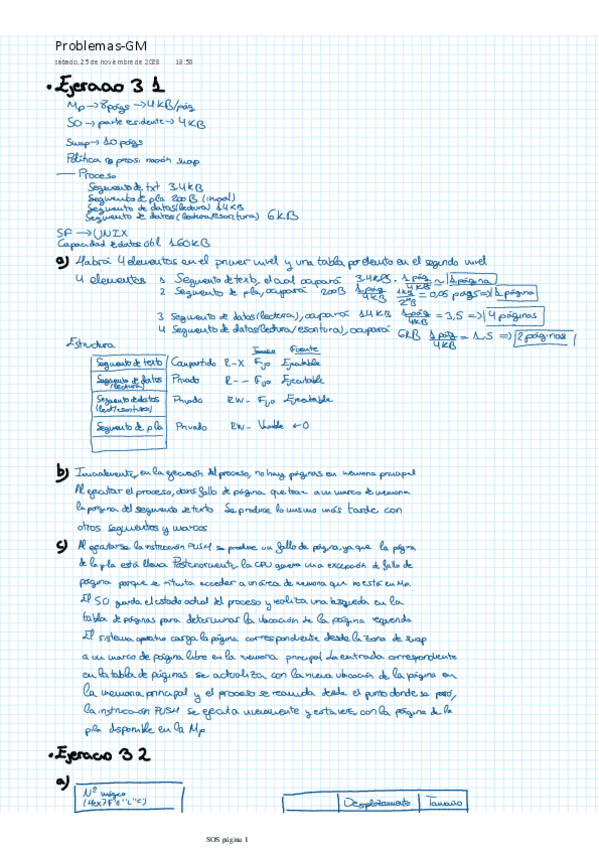 Problemas-GM
sábado, 25 de noviembre de 2023 13:50
• Ejercicio 3 1
Mp → 8págs → 4KB/pág
SO → parte residente → 4KB
Swap → 10 págs
Política no preasignación swap
— Proceso
Segmento de txt 3.4KB
Segmento de pila 200B (inicial)
Segmento de datos (lectura) 14KB
Segmento de datos (lectura/escritura) 6KB
SF → UNIX
Capacidad datos útil 160KB
a) Habrá 4 elementos en el primer nivel y una tabla por elemento en el segundo nivel
4 elementos 1 Segmento de texto, el cual ocupará 3.4KB · 1 pág / 4KB ≈ 1 página
2 Segmento de pila, ocupará 200B 1 pág / 4KB 1KB / 2¹⁰B = 0,05 págs => 1 página
3 Segmento de datos (lectura), ocupará 14KB 1 pág / 4KB = 3,5 => 4 páginas
4 Segmento de datos (lectura/escritura), ocupará 6KB 1 pág / 4KB = 1,5 => 2 páginas
Estructura
Tamaño Fuente
Segmento de texto Compartido R-X Fijo Ejecutable
Segmento de datos (lectura) Privado R-- Fijo Ejecutable
Segmento datos (lect/escritura) Privado RW- Fijo Ejecutable
Segmento de pila Privado RW- Variable ←0
b) Inicialmente, en la ejecución del proceso, no hay páginas en memoria principal
Al ejecutar el proceso, dará fallo de página que trae a un marco de memoria
la página del segmento de texto Se produce lo mismo más tarde con
otros segmentos y marcos
c) Al ejecutarse la instrucción PUSH se produce un fallo de página, ya que la página
de la pila está llena Posteriormente, la CPU genera una excepción de fallo de
página porque se intenta acceder a un área de memoria que no está en Mp.
El SO guarda el estado actual del proceso y realiza una búsqueda en la
tabla de páginas para determinar la ubicación de la página requerida
El sistema operativo carga la página correspondiente desde la zona de swap
a un marco de página libre en la memoria principal La entrada correspondiente
en la tabla de páginas se actualiza con la nueva ubicación de la página en
la memoria principal y el proceso se reanuda desde el punto donde se paró,
la instrucción PUSH se ejecuta nuevamente y esta vez con la página de la
pila disponible en la Mp
• Ejercicio 3 2
a)
Nº mágico
Desplazamiento Tamaño
SOS página 1